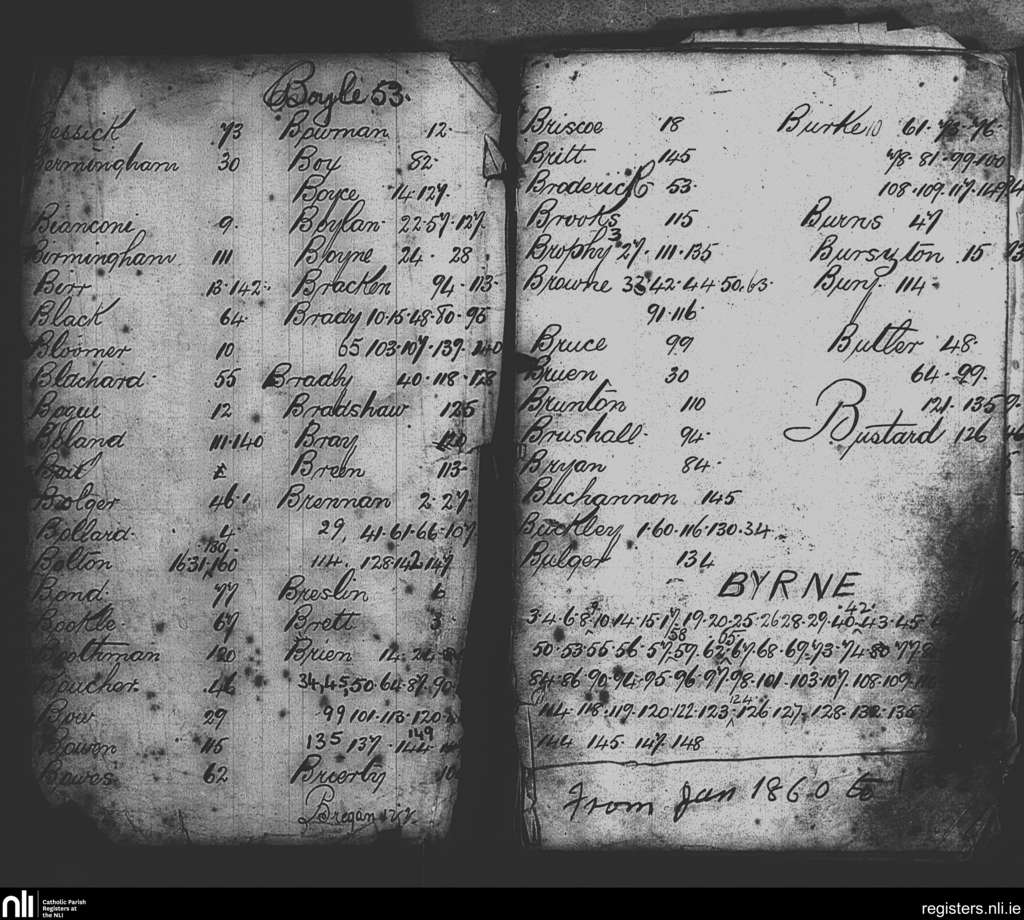 Boyle 53.
Bessick 73
Bermingham 30
Bianconi 9.
Birmingham 111
Birr 13.142.
Black 64.
Bloomer 10
Blachard. 55
Bogue 12
Boland 111.140
Bolger 46.
Bollard. 4
130.
Bolton 16 31 160
Bond. 77
Bookle. 67
Boothman 120
Boucher. 46
Bow 29
Bowen 115
Bowes. 62
Bowman 12.
Boy 82.
Boyce 14.127.
Boylan. 22.57.127.
Boyne 24. 28
Bracken 94.113.
Brady 10.15.48.80.95
65 103.107.139.140
Bradly 40.118.128
Bradshaw 125
Bray 120
Breen 113.
Brennan 2.27.
29, 41.61.66.107
114. 128.142 147
Breslin 6
Brett 3
Brien 14.24.
34,45,50.64.87.90
99 101.113.120.
135 137. 144 149
Brierty 10
Bregan
Briscoe 18
Britt. 145
Broderick 53.
Brooks 115
Brophy 3 27.111.135
Browne 33 42.44 50.63.
91.116.
Bruce 99
Bruen 30
Brunton 110
Brushall. 94.
Bryan 84.
Buchannon 145
Buckley 1.60.116.130.34
Bulger 134
Burke 10 61.73.76.
78.81.99.100
108.109.117.149
Burns 47
Burszton 15
Bury. 114.
Butler 48.
64.99.
121.135
Bustard 126
BYRNE
9 42.
3.4.6.8.10.14.15.17.19.20.25.26 28.29.40.43.45
58 65
50.53.55.56.57.59.62.67.68.69.73.74.80 77
84.86.90.94.95.96.97.98.101.103.107.108.109.
124
114.118.119.120.122.123.126.127.128.132.135
144 145.147.148
From Jan 1860 to
nli
Catholic Parish
Registers at
the NLI
registers.nli.ie